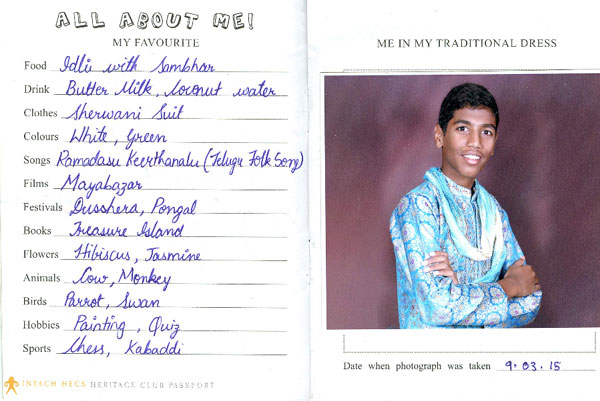 ALL ABOUT ME!
MY FAVOURITE
Food Idli with Sambhar
Drink Butter Milk, Coconut water
Clothes Sherwani Suit
Colours White, Green
Songs Ramadasu Keerthanalu (Telugu Folk Song)
Films Mayabazar
Festivals Dusshera, Pongal
Books Treasure Island
Flowers Hibiscus, Jasmine
Animals Cow, Monkey
Birds Parrot, Swan
Hobbies Painting, Quiz
Sports Chess, Kabaddi
INTACH HECS HERITAGE CLUB PASSPORT
ME IN MY TRADITIONAL DRESS
Date when photograph was taken 9.03.15